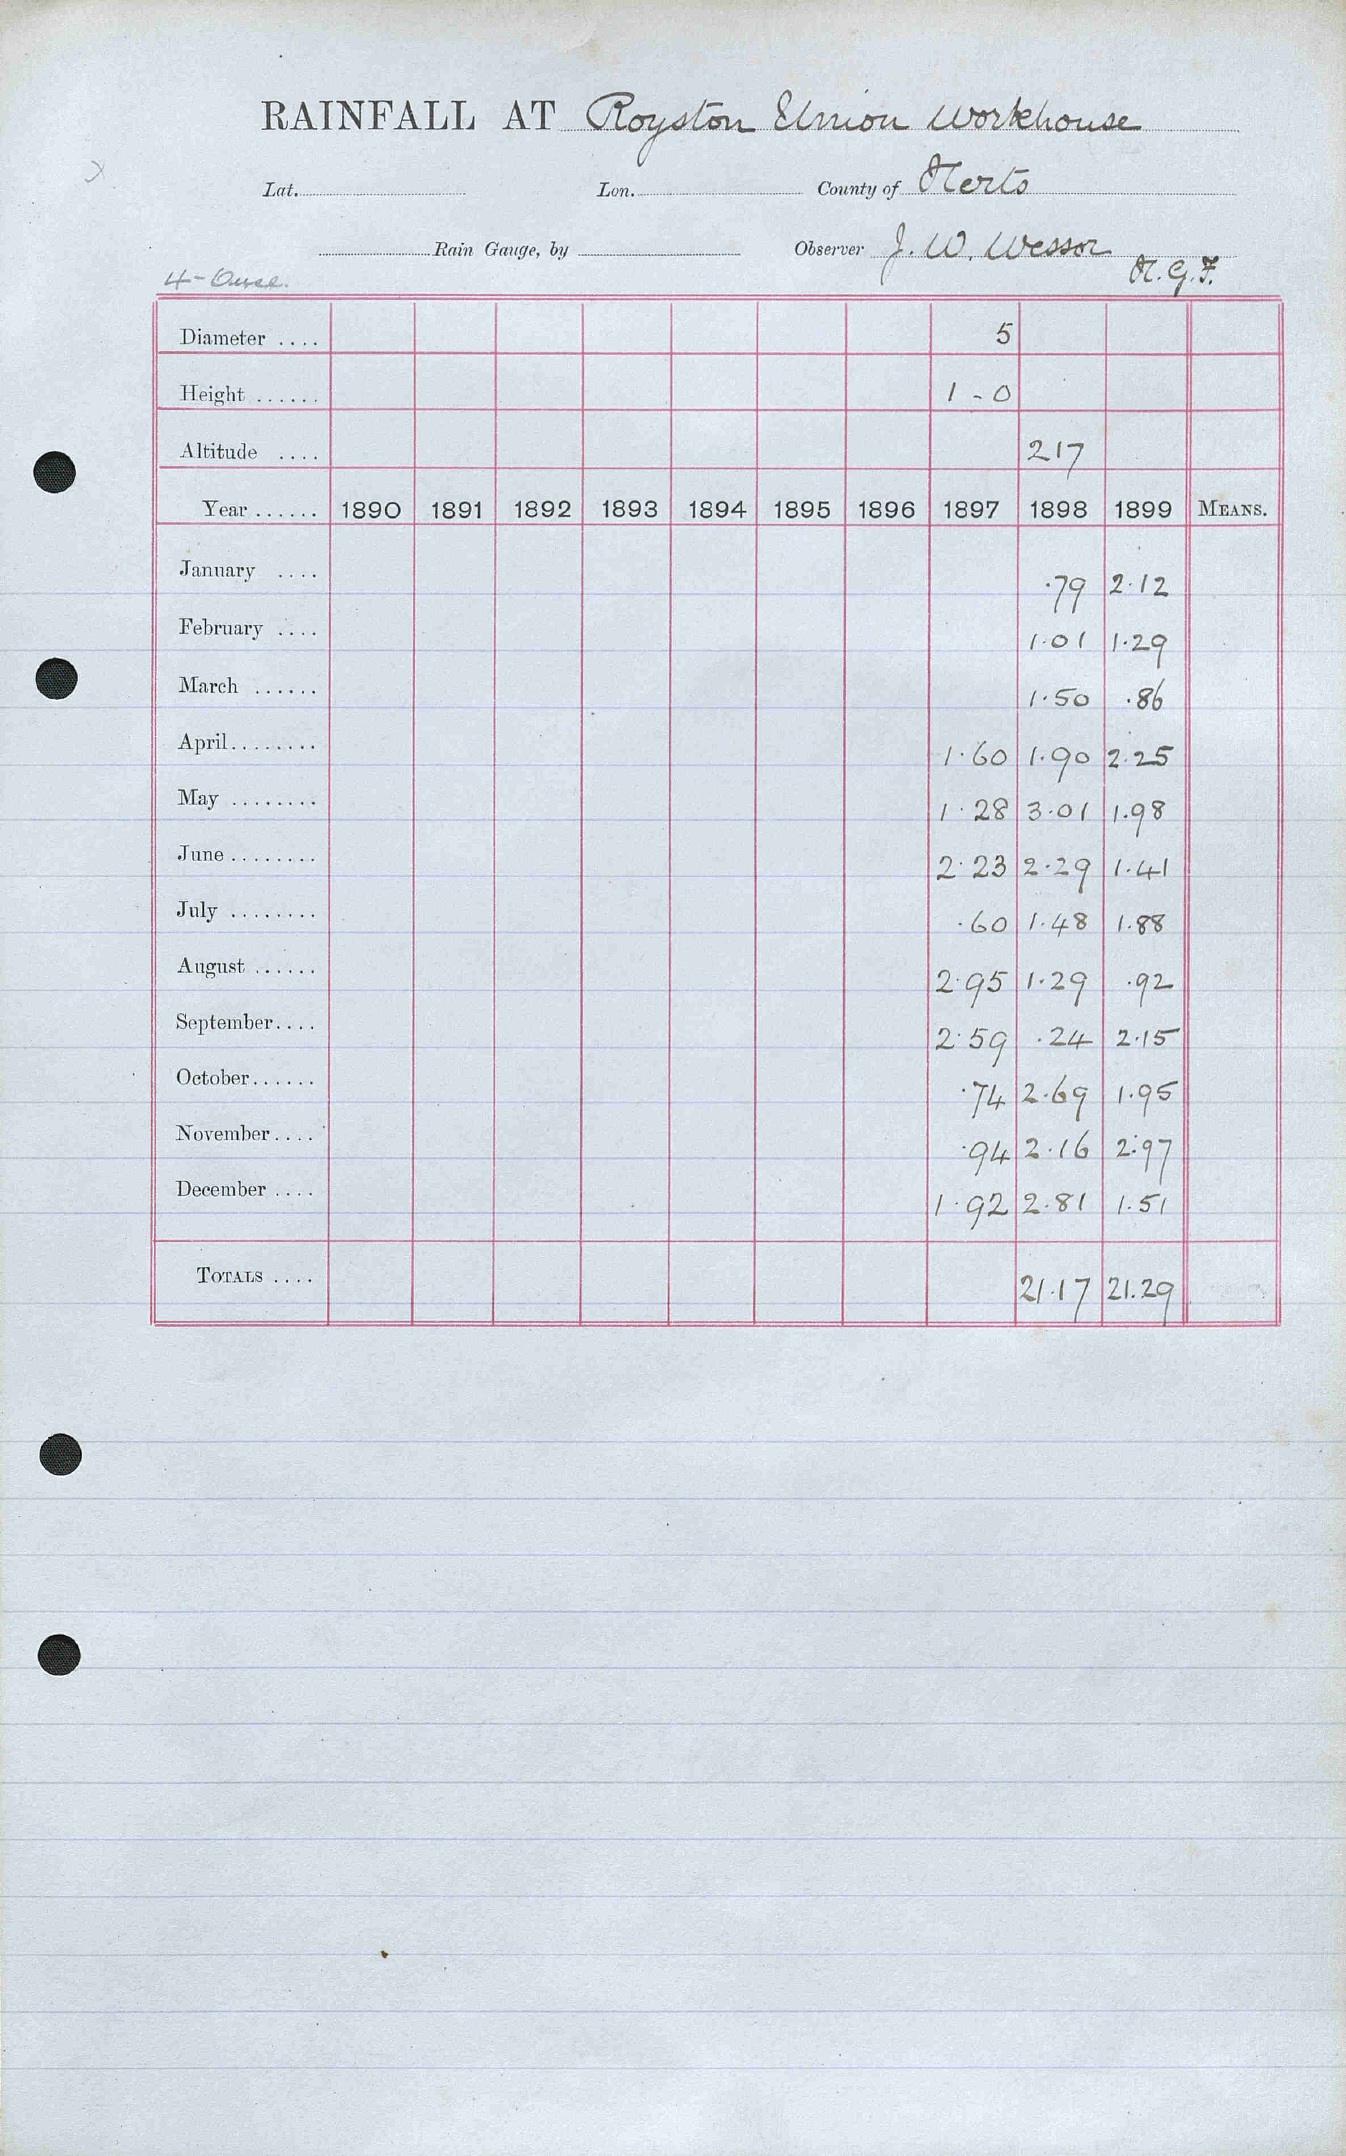 RAINFALL AT Royston Union Workhouse
Lat. Lon. County of Herts
Rain Gauge, by Observer J. W. Wessor
H.G.F.
4 - Ouse.
Diameter .... 5
Height ...... 1 - 0
Altitude .... 217
Year ...... 1890 1891 1892 1893 1894 1895 1896 1897 1898 1899 MEANS.
January .... .79 2.12
February .... 1.01 1.29
March ...... 1.50 .86
April........ 1.60 1.90 2.25
May ........ 1.28 3.01 1.98
June ........ 2.23 2.29 1.41
July ........ .60 1.48 1.88
August ...... 2.95 1.29 .92
September.... 2.59 .24 2.15
October...... .74 2.69 1.95
November.... .94 2.16 2.97
December .... 1.92 2.81 1.51
TOTALS .... 21.17 21.29